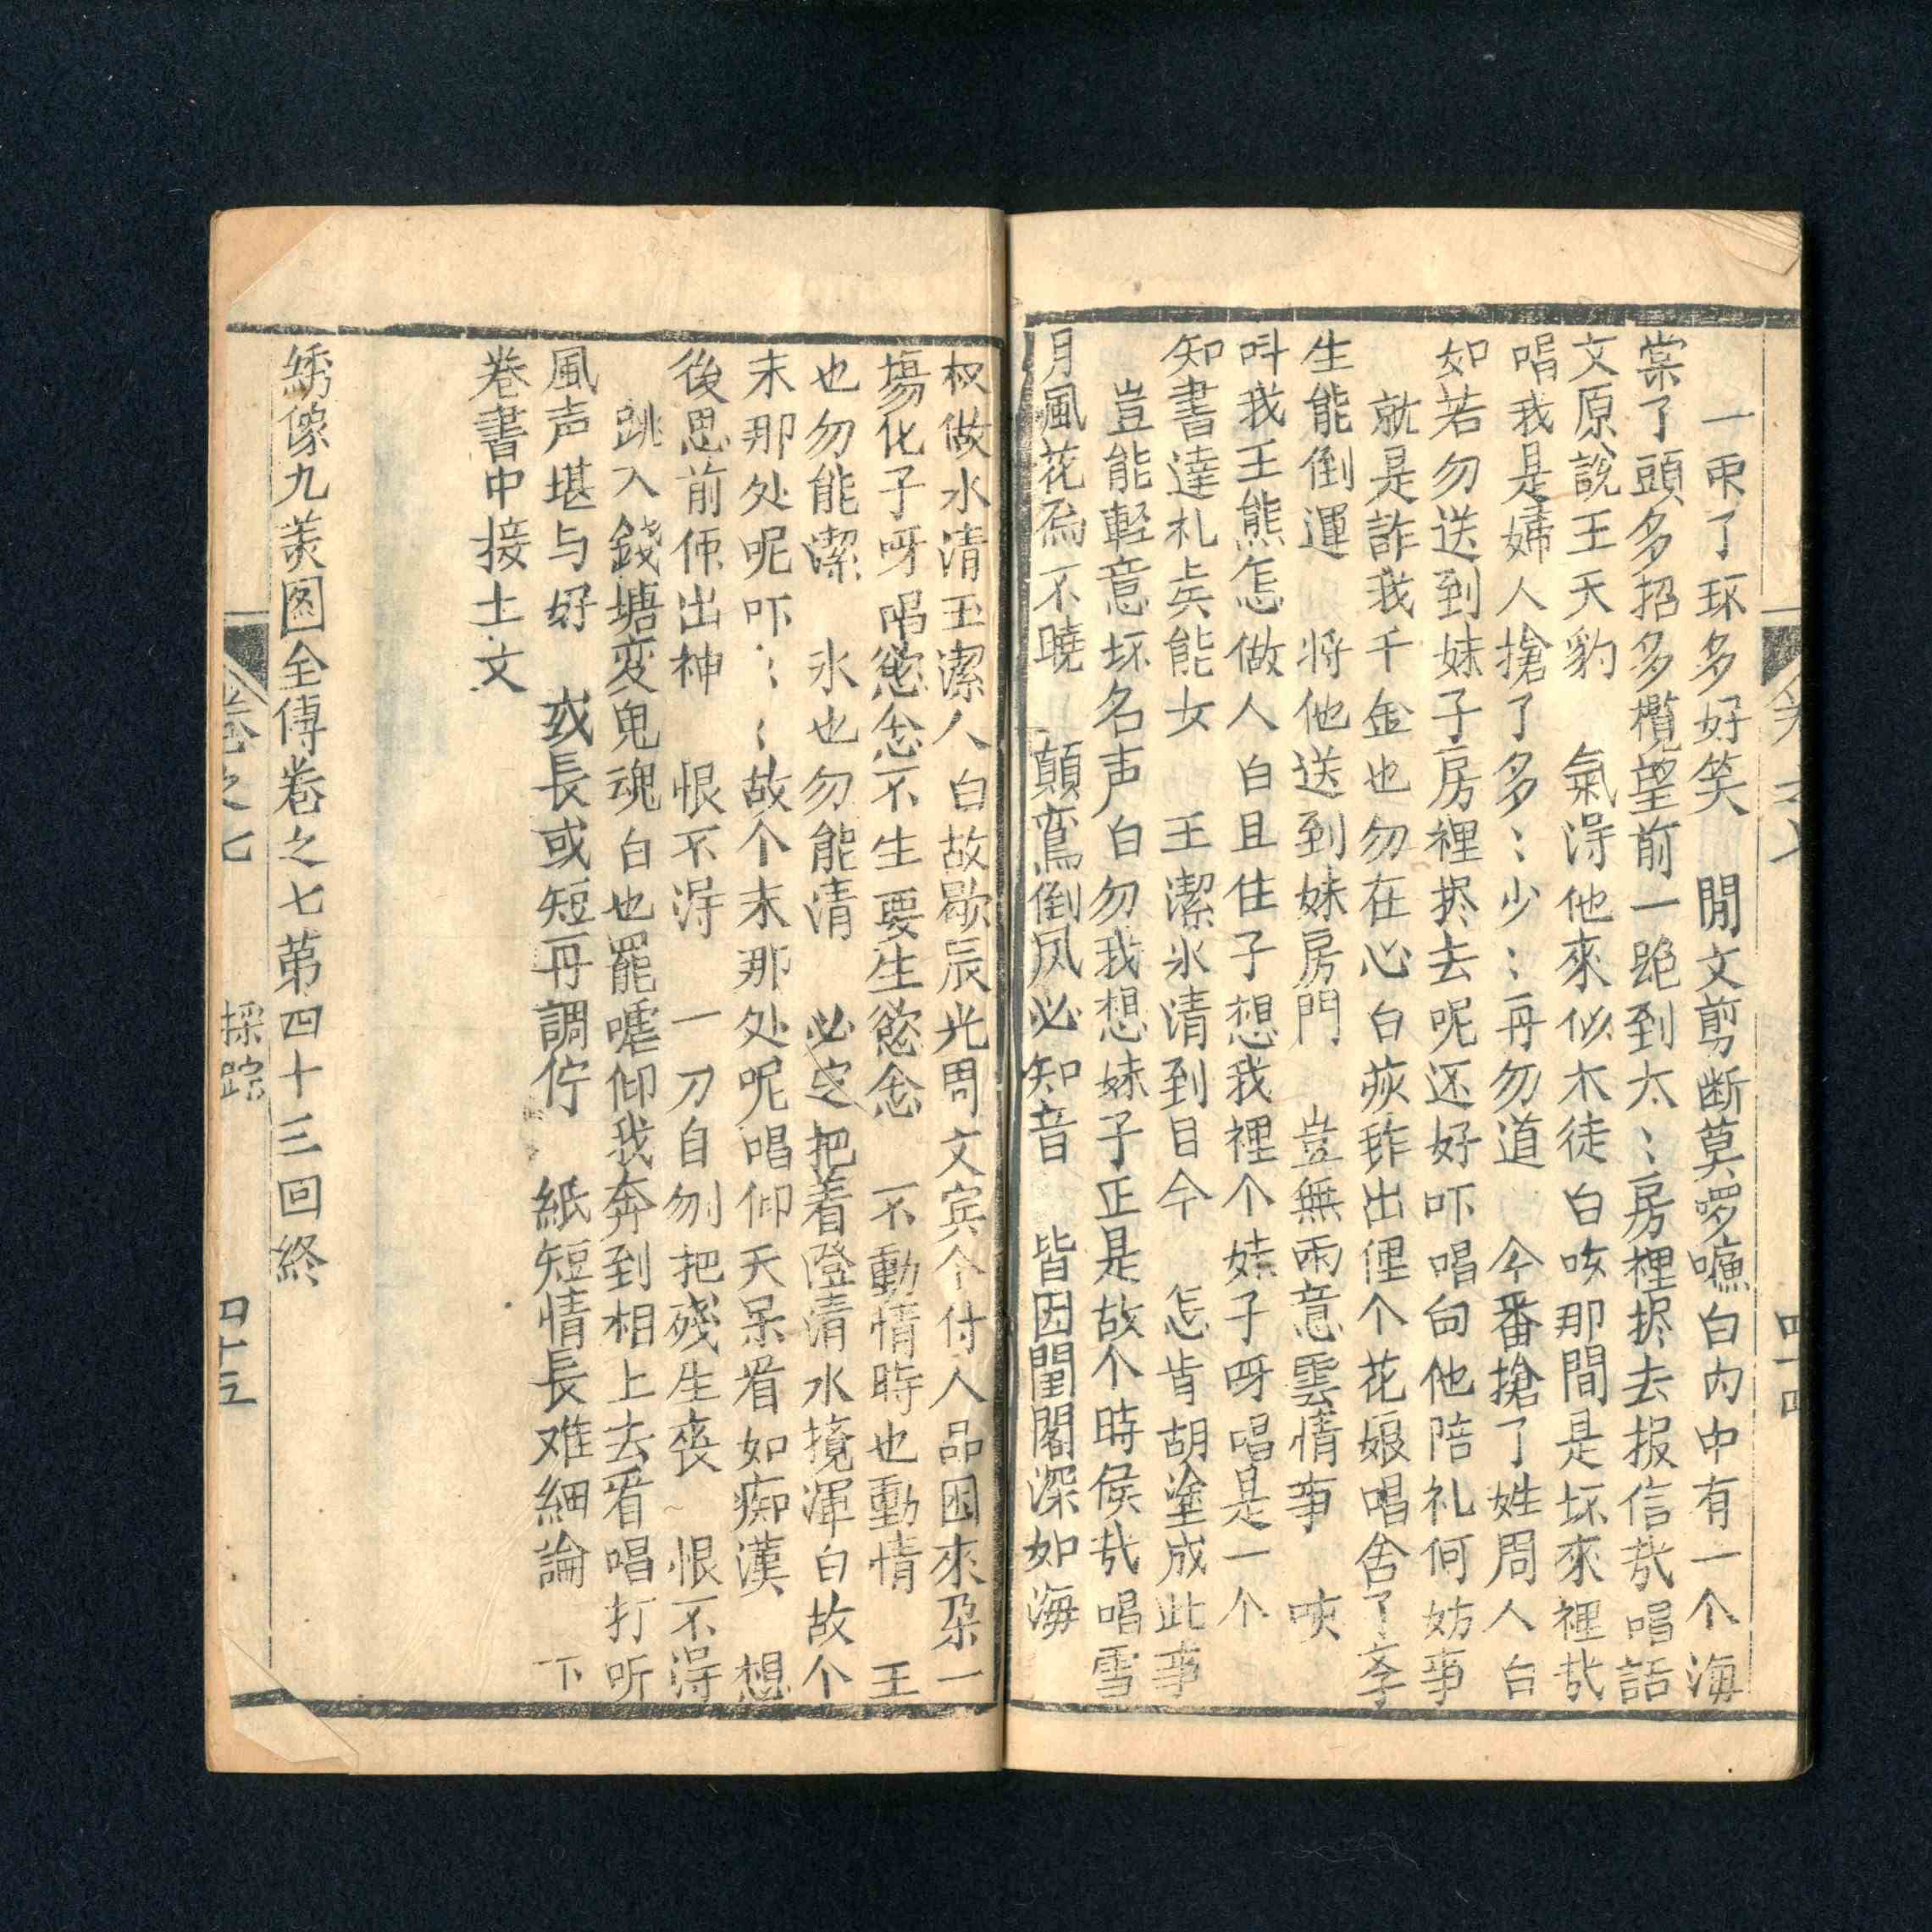 一両了环多好笑　閒文剪断莫啰囌白内中有一个海
棠了頭多招多欖望前一跪到太〻房裡拶去报信哉唱話
文原說王天豹　氣淂他來似木徒白咳那間是坏來裡哉
唱我是婦人搶了多〻少〻再勿道　今番搶了姓周人白
如若勿送到妹子房裡拶去呢还好吓唱向他陪礼何妨事
就是詐我千金也勿在心白疢痄出俚个花娘唱舍了李
生能倒運　将他送到妹房門　豈無雨意雲情事　唊
呌我王熊怎做人白且住子想我裡个娃子呀唱是一个
知書達礼兵能女　王潔氷清到目今　怎肯胡塗成此事
豈能輕意坏名声白勿我想妹子正是故个時侯哉唱雪
月風花焉不曉　顛鸞倒凤必知音　皆因閨閣深如海
权做水清玉潔人白故歇辰光周文宾个付人品困來朶一
塲化子呀唱慾念不生要生慾念　不動情時也動情　王
也勿能潔　氷也勿能清　必定把着澄清水攪渾白故个
末那处呢吓〻〻故个末那处呢唱仰天呆看如痴漢　想
後思前伂出神　恨不淂　一刀自刎把殘生喪　恨不淂
跳入錢塘変鬼魂白也罷嘘仰我奔到相上去看唱打听
風声堪与好　或長或短再調佇　紙短情長难細論　下
卷書中接土文
綉像九羙图全傳卷之七苐四十三回終
卷之七　採踪　四十五